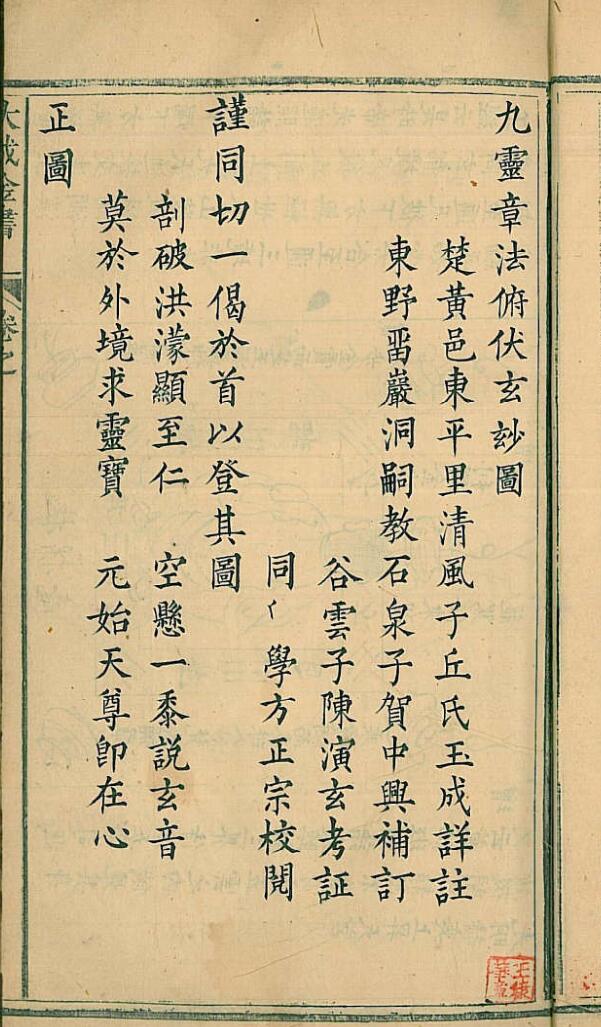 九靈章法俯伏玄玅圖
楚黃邑東平里清風子丘氏玉成詳註
東野畱巖洞嗣教石泉子賀中興補訂
谷雲子陳演玄考証
同〱學方正宗校閱
謹同切一偈於首以登其圖
剖破洪濛顯至仁　空懸一黍説玄音
莫於外境求靈寶　元始天尊即在心
正圖
大成金書　卷之